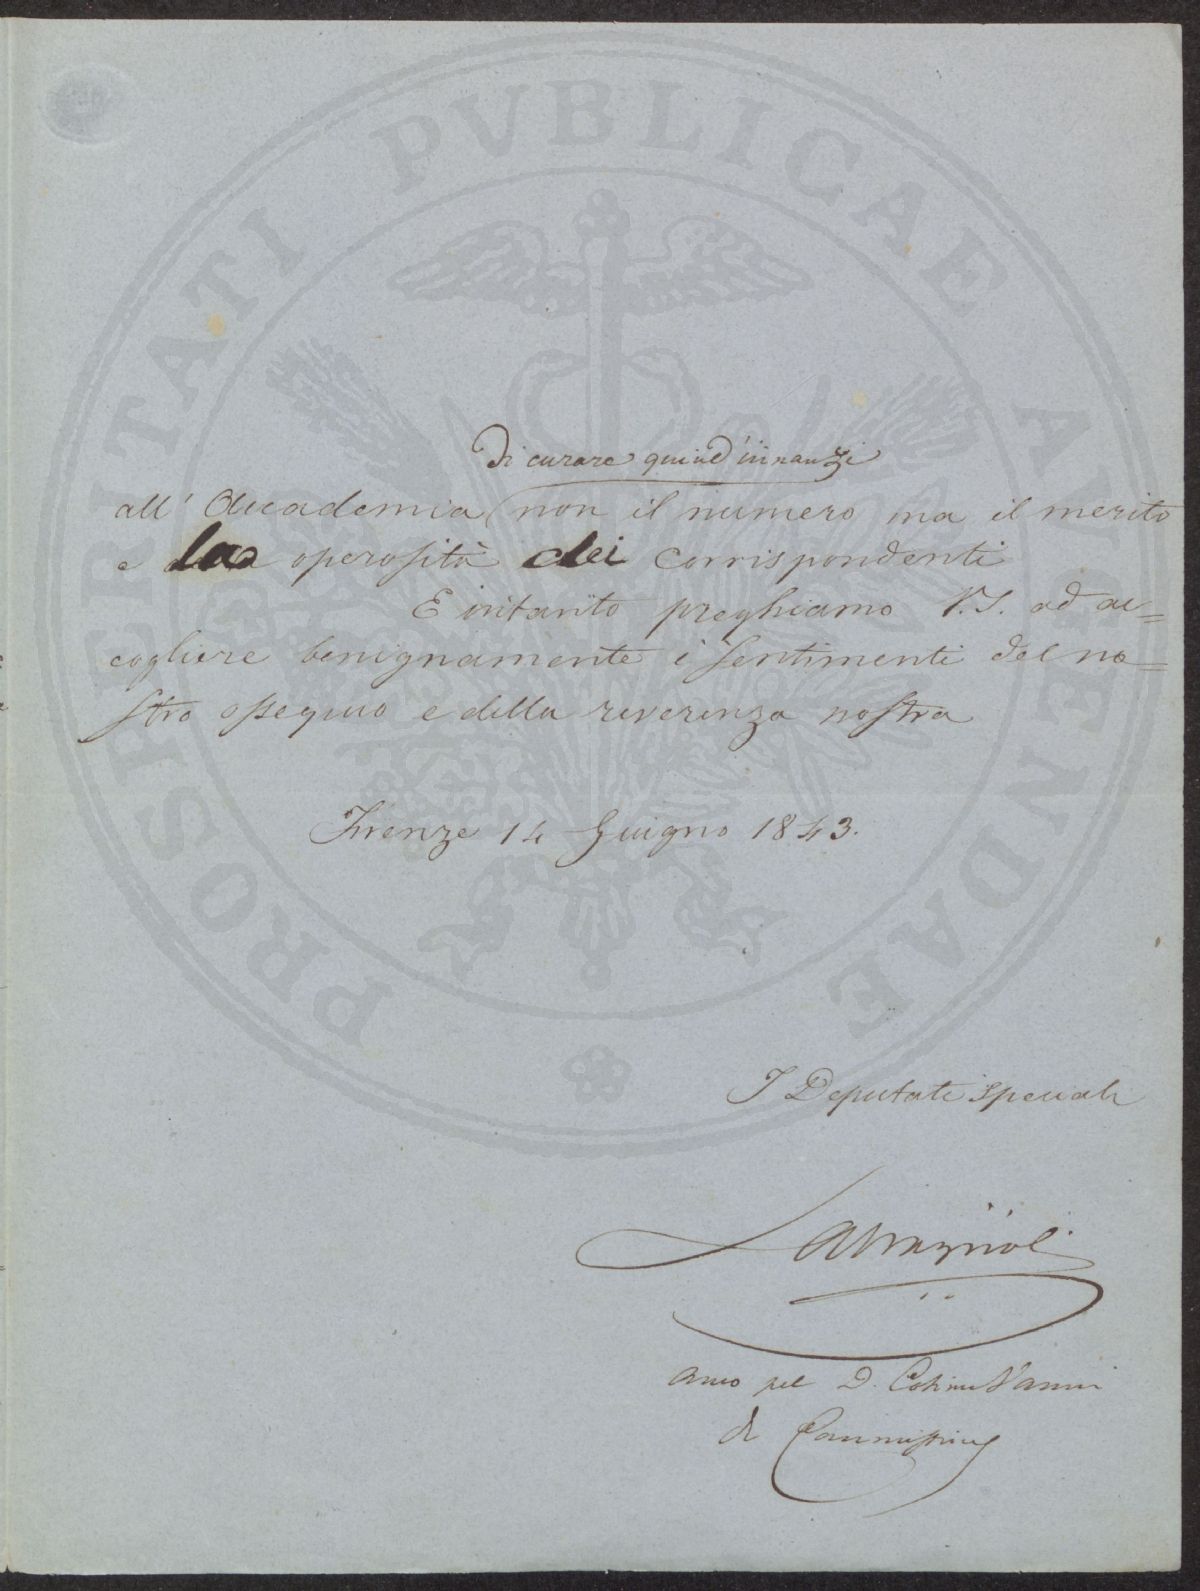 PROSPERITATI PVBLICAE AVGENDAE
Di curare quind'innanzi
all' Accademia non il numero ma il merito
e la operosità dei corrispondenti
E intanto preghiamo V.S. ad ac=
cogliere benignamente i sentimenti del no=
stro ossequio e della reverenza nostra
Firenze 14 Giugno 1843.
I Deputati speciali
anco pel D. Cosimo Vanni
di Commissione